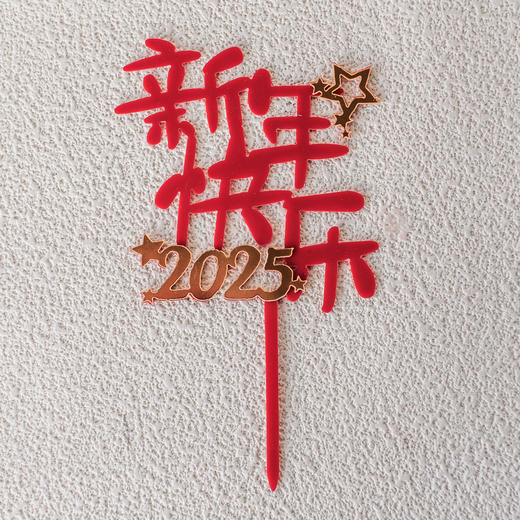 新年
快乐
2025